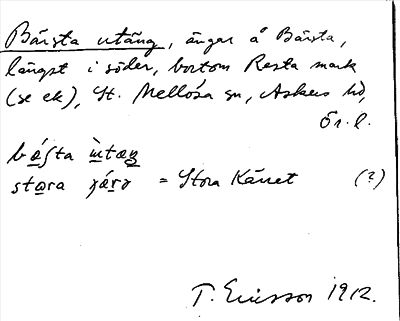 Bärsta utäng, ängar å Bärsta,
längst i söder, bortom Resta mark
(se ek), St. Mellösa sn, Askers hd,
Ör. l.
stora = Stora Kärret (?)
T. Ericsson 1912.